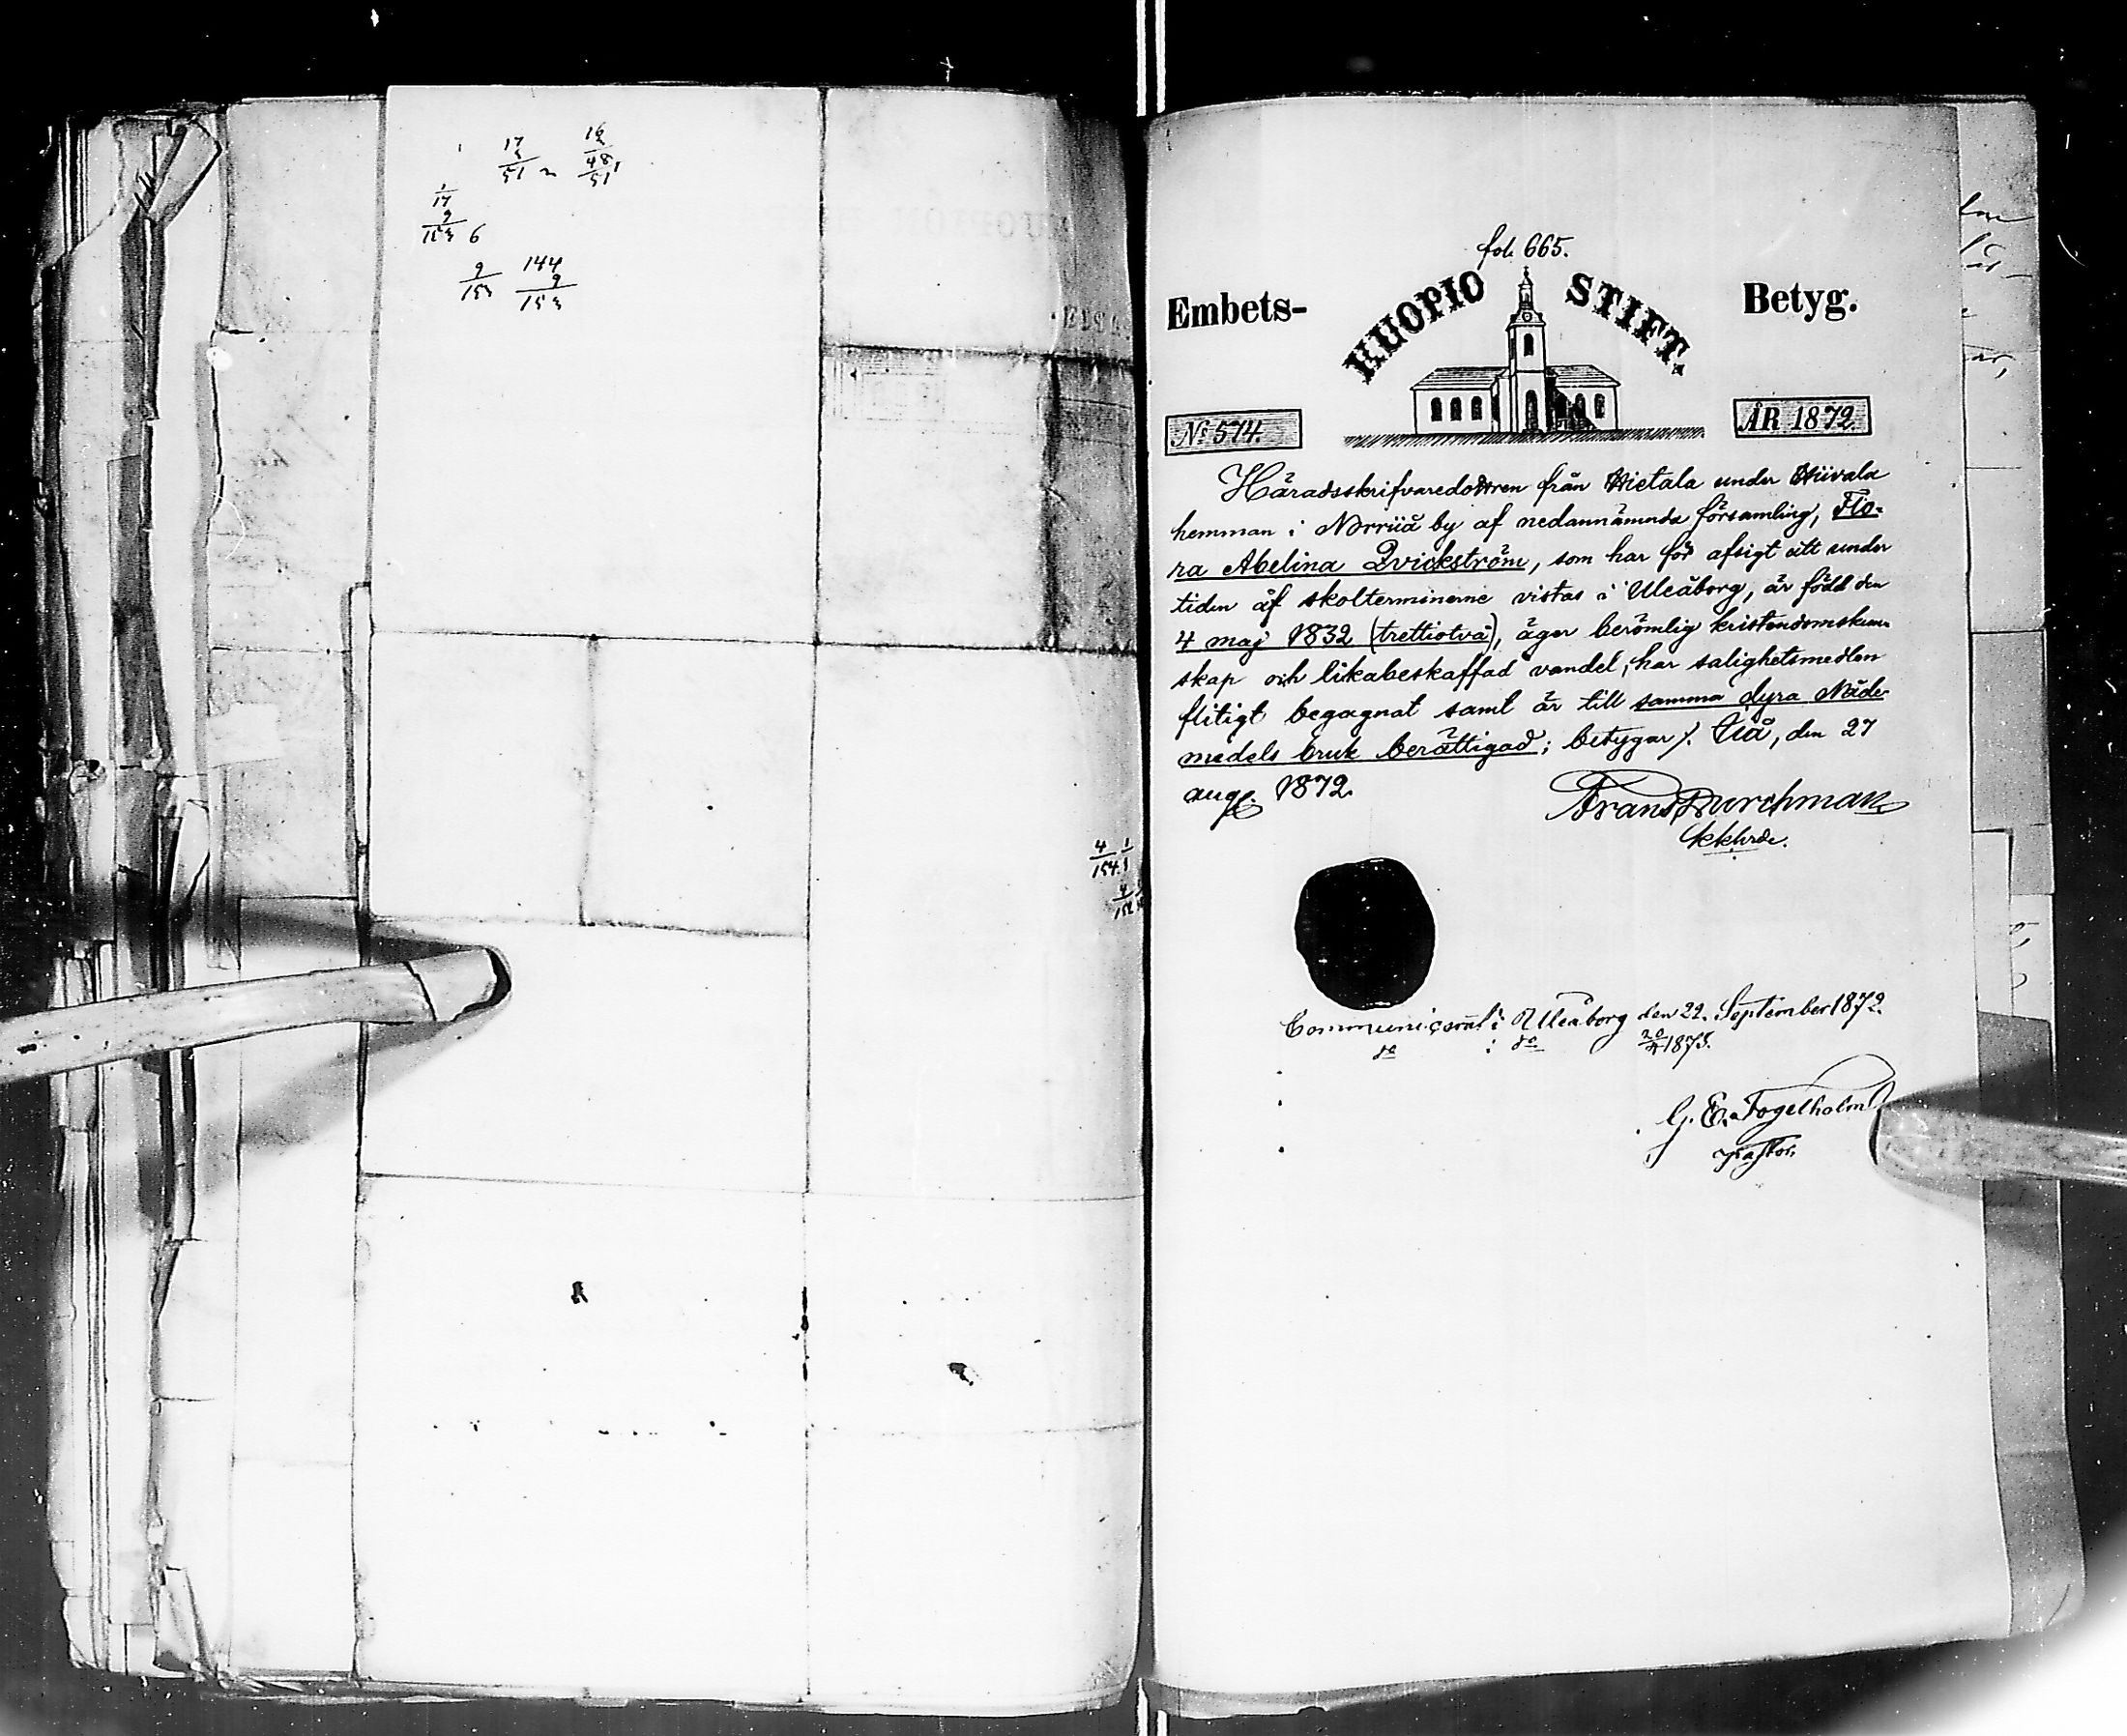 17
3
51
16
48
51
17
9
153 6
9
153
144
9
153
4
154
fol. 665.
Embets-
KUOPIO STIFT.
Betyg.
No 574.
ÅR 1872
Häradsskrifvaredottren från Hietala under Hiivala
hemman i Norriiå by af nedannämnda församling, Flo-
ra Abelina Qvickström, som har för afsigt att under
tiden af skolterminerne vistas i Uleåborg, är född den
4 maj 1832 (trettiotvå), äger berömlig kristendomskun-
skap och likabeskaffad vandel, har salighetsmedlen
flitigt begagnat samt är till samma dyra Nåde-
medels bruk berättigad; betygar /. Iiå, den 27
aug. 1872.
Frans Durchman
Kkhrde.
Communicerat i Uleåborg den 22. September 1872.
do i do 1873.
G. E. Fogelholm
Pastor.